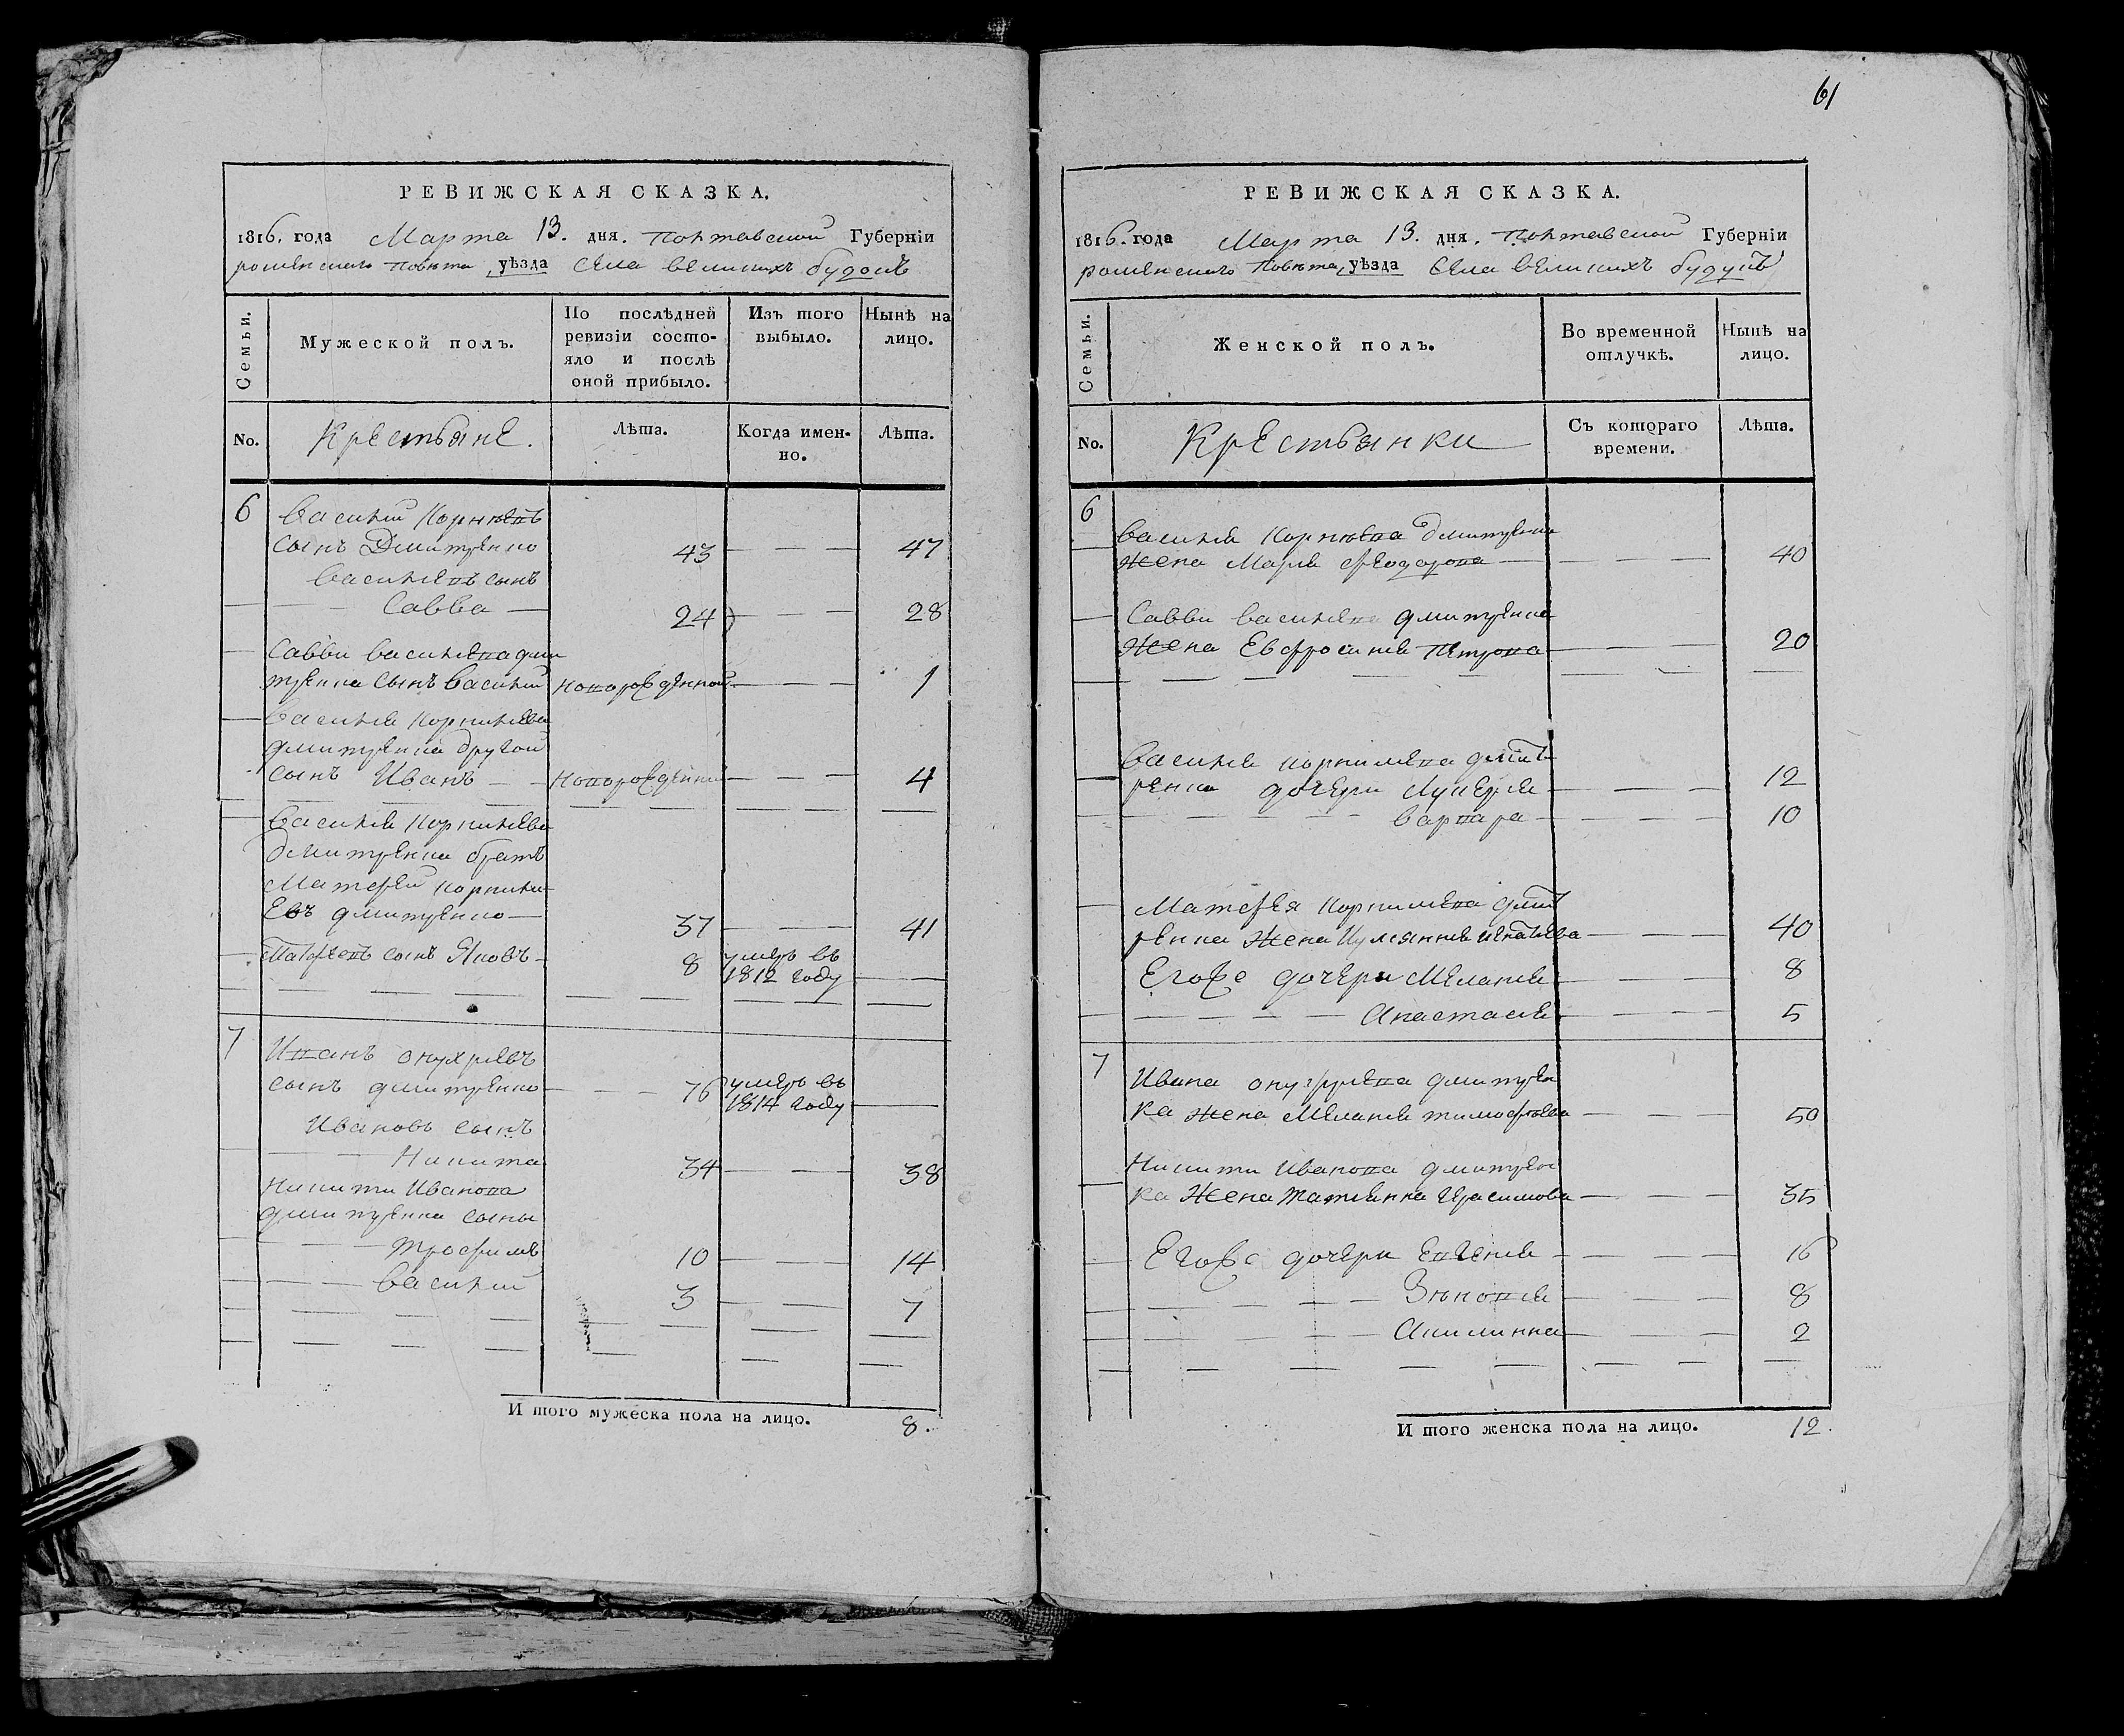 РЕВИЖСКАЯ СКАЗКА.
1816. года Марта 13. дня. Полтавской Губерніи
роменскаго повѣта, уѣзда села великихъ будокъ
Семьи.
Мужеской полъ.
По послѣдней
ревизіи состо-
яло и послѣ
оной прибыло.
Изъ того
выбыло.
Нынѣ на
лицо.
No.
Крестьяне.
Лѣта.
Когда имен-
но.
Лѣта.
6 Василий Корнѣевъ
сынъ Дмитренко 43 — — — 47
Васильевъ сынъ
— — Савва — 24 — — — 28
Савви васильева дми
тренка сынъ василий новорожденной — — — 1
василія корнильева
дмитренка другой
сынъ Иванъ — новорожденной — — — 4
василія корнильева
дмитренка братъ
Матфей корнили
евъ дмитренко — 37 — — 41
Матфеевъ сынъ Яковъ — 8 умеръ въ
1812 году —
7 Иванъ онуфріевъ
сынъ дмитренко — — — 76 умеръ въ
1814 году —
Ивановъ сынъ
— — Никита 34 — — 38
Никити Иванова
дмитренка сыны
— — Трофимъ 10 — — 14
— — василий 3 — — 7
И того мужеска пола на лицо. 8.
61
РЕВИЖСКАЯ СКАЗКА.
1816. года Марта 13. дня. Полтавской Губерніи
роменскаго повѣта, уѣзда села великихъ будокъ
Семьи.
Женской полъ.
Во временной
отлучкѣ.
Нынѣ на
лицо.
No.
Крестьянки
Съ котораго
времени.
Лѣта.
6
василія Корнѣева дмитренка
жена Марія Феодорова — — — — 40
Савви васильева дмитренка
жена Евфросинія Петрова — — — 20
василія корнилиева дмит
ренка дочери Лукерія — — — 12
— — — варвара — — — 10
Матфея корнилиева дмит
ренка жена Иулианнія игнатиева — — — 40
Егожъ дочери Меланія — — — 8
— — — Анастасія — — — 5
7
Ивана онуфриева дмитрен
ка жена Меланія тимофѣева — — — 50
Никити Иванова дмитрен
ка жена татиянна Герасимова — — — 35
Егожъ дочери Евгенія — — — 16
— — — Зѣновія — — — 8
— — — Акилинна — — — 2
И того женска пола на лицо. 12.